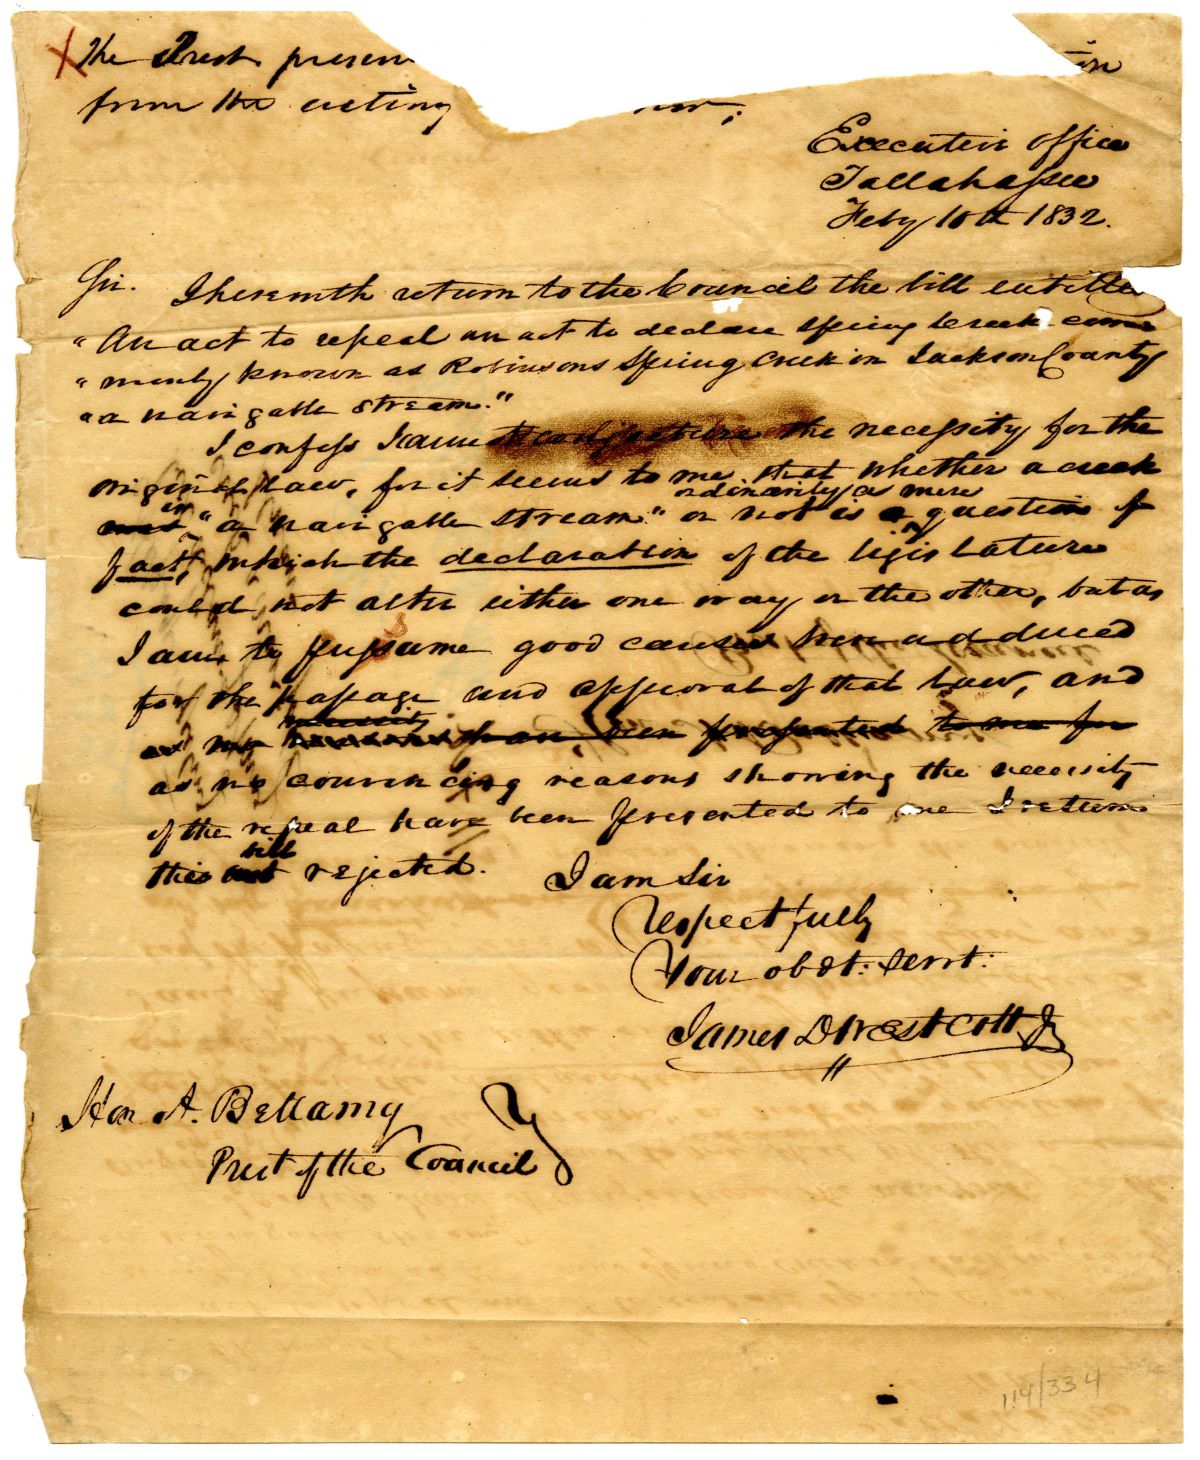 X The Prest. presen
from the acting nor;
Executive office
Tallahassee
Feby 10th 1832.
Sir. I herewith return to the Council the bill entitled
"An act to repeal an act to declare Spring Creek com=
"monly known as Robinsons Spring Creek in Jackson County
"a navigable stream."
I confess I cannot conjecture the necessity for the
original law, for it seems to me that whether a creek
ordinarily a mere
is "a navigable stream" or not is question of
fact, which the declaration of the legislature
could not alter either one way or the other, but as
I am to presume good causes were adduced
for the passage and approval of that law, and
necessity
as no have been presented to me for
as no convincing reasons showing the necessity
of the repeal have been presented to me I return
bill
the act rejected. I am Sir
Respectfully
Your obdt: Servt:
James D Westcott Jr
Hon A. Bellamy
Prest of the Council
114/334